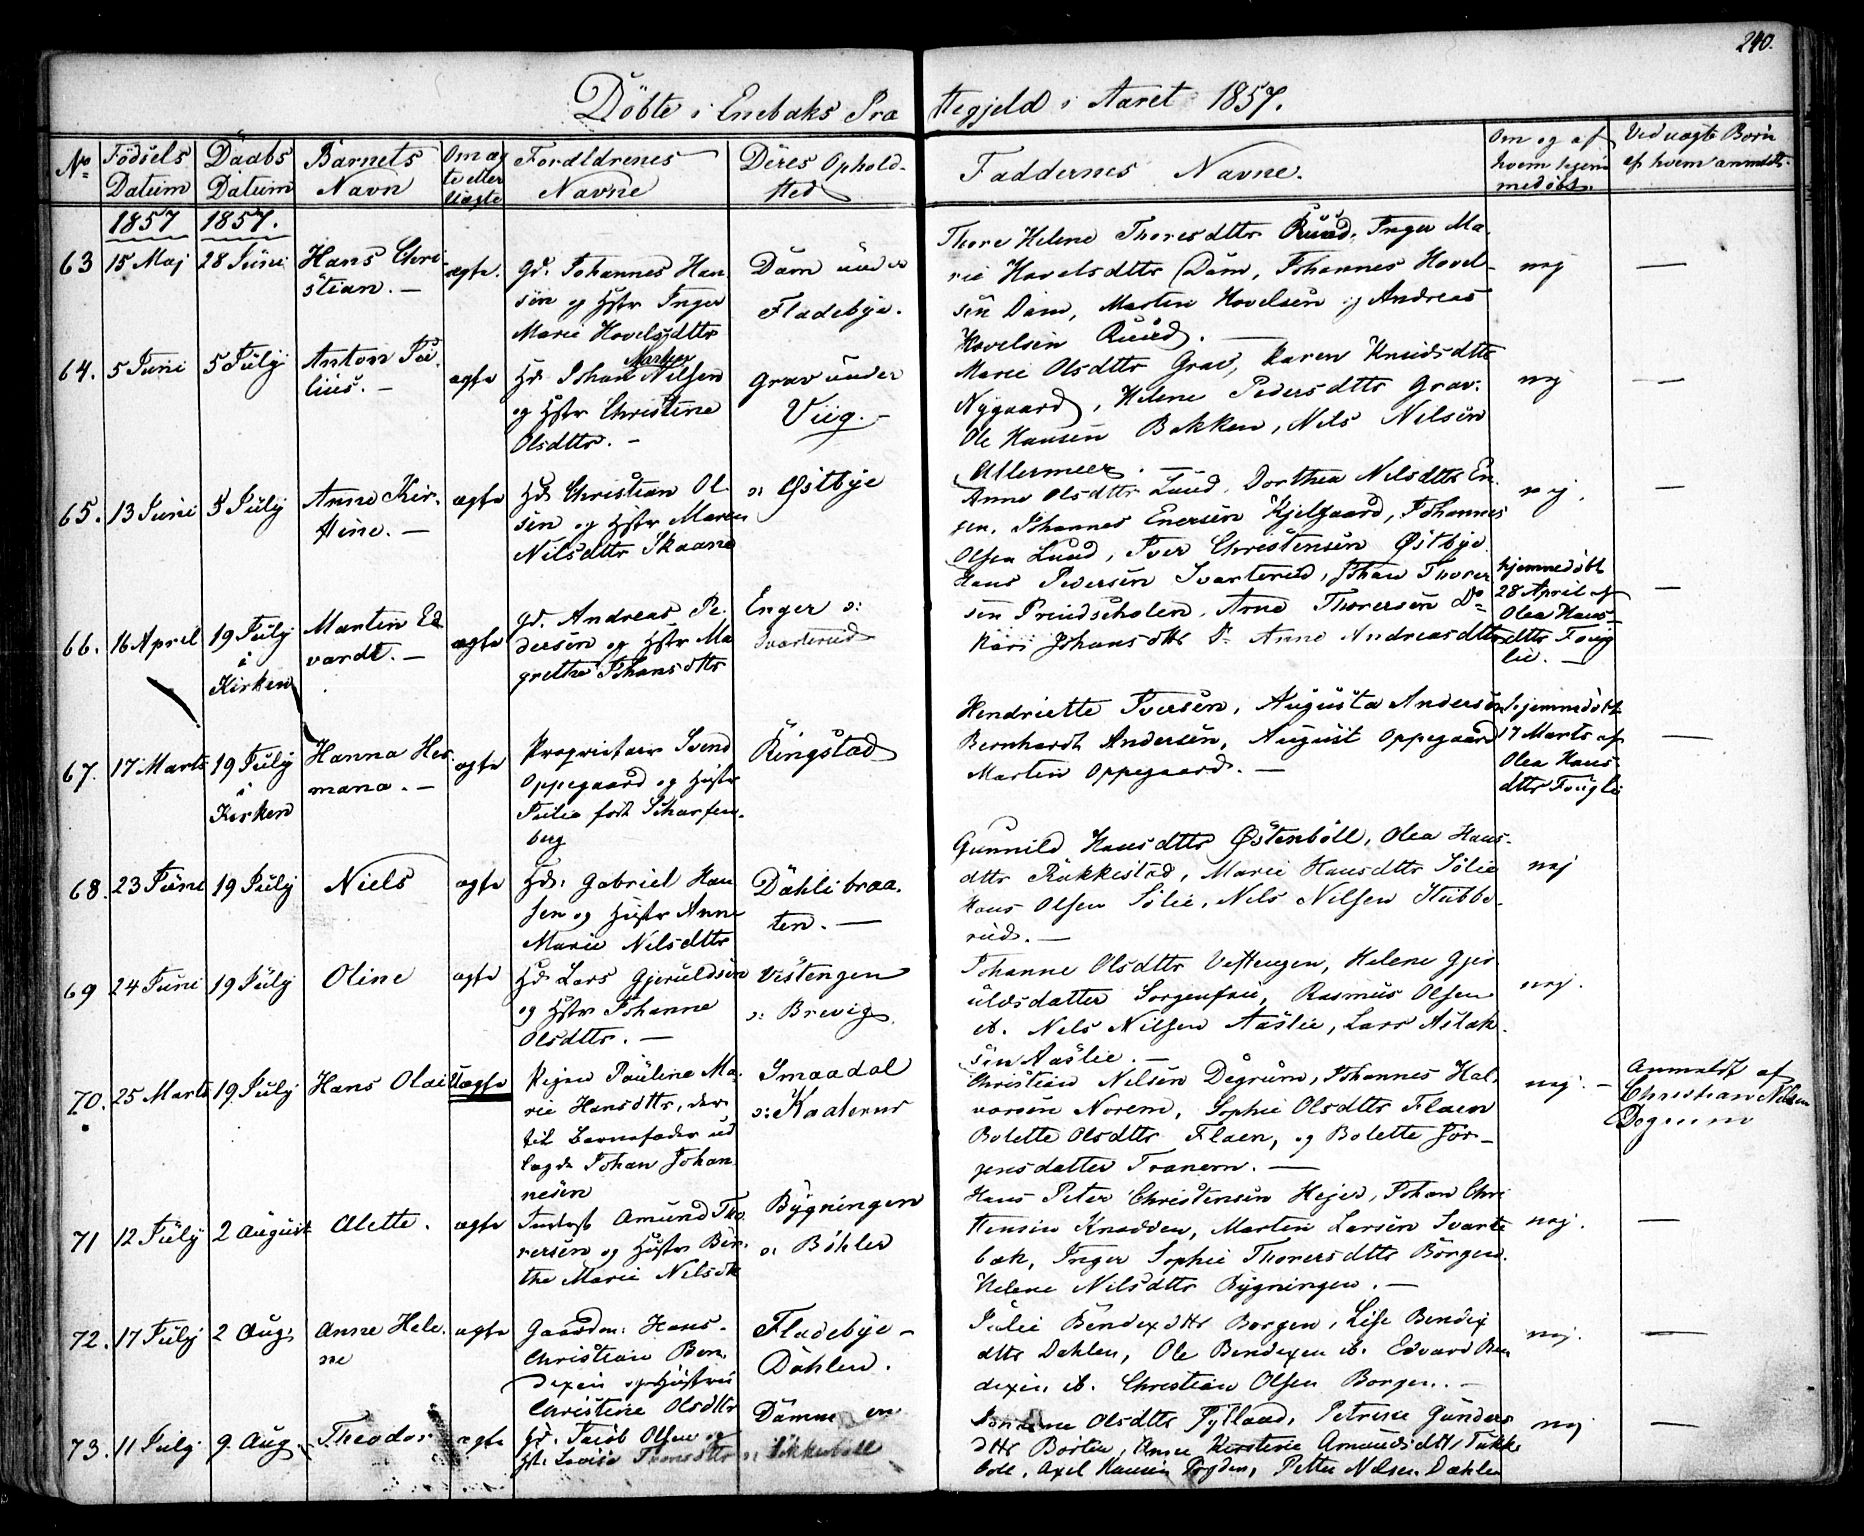 240.
Döbte i Enebaks Præ stegjeld i Aaret 1857.
No Födsels Datum
Daabs Datum
Barnets Navn
Om ægte eller Uægte
Forældrenes Navne
Deres Opholdsted
Faddernes Navne.
Om og af hvem hjemmedöbt.
Ved uægte Börn af hvem anmeldt.
1857 1857.
63 15 Maj 28 Juni Hans Christian. — ægte.
Gd. Johannes Han
sen og Hstr Inger
Marie Hovelsdttr
Dam under
Fladebye.
Thore Helene Thoresdttr Ruud, Inger Ma
rie Hovelsdttr Dam, Johannes Hovel-
sen Dam, Martin Hovelsen og Andreas
Hovelsen Ruud. —
nej —
64. 5 Juni 5 July Anton Ju
lius. — ægte
Hd. Johan Nilsen
og Hstr Christine
Olsdttr. —
Grav under
Viig. —
Marie Olsdttr Grav, Karen Knudsdttr
Nygaard, Helene Pedersdttr Grav.
Ole Hansen Bakken, Nils Nilsen
nej —
65. 13 Juni 5 July Anne Kir-
stine. — ægte
Hd. Christian Ol
sen og Hstr Maren
Nilsdttr Skaane
o: Østbye
Anne Olsdttr Lund, Dorthea Nilsdttr En
gen, Johannes Enersen Kjelgaard, Johannes
Olsen Lund, Iver Christensen Østbye
nej. —
66. 16 April 19 July
i
Kirken
Martin Ed
vardt. — ægte
Gd. Andreas Pe
dersen og Hstr Ma
grethe Johansdttr
Enger o:
Svarterud
Hans Pedersen Svarterud, Johan Thorer
sen Prindseholen, Arne Thorersen Do
Kari Johansdttr Do Anne Andreasdttr
hjemmedöbt
28 April af
Olea Hans-
dttr Fougli
lie. —
—
67. 17 Marts 19 July
i
Kirken
Hanna Her
mana. — ægte
Proprietær Svend
Oppegaard og Hustr
Julie født Scharfen
berg
Ringstad
Hendriette Iversen, Augusta Andersen
Bernhardt Andersen, August Oppegaard
Martin Oppegaard. —
hjemmedöbt
17 Marts af
Olea Hans
dttr Fougli
—
68. 23 Juni 19 July Niels ægte
Hd. Gabriel Han
sen og Hustr Anne
Marie Nilsdttr
Dahlibraa.
ten. —
Gunnild Hansdttr Østenböll, Olea Hans-
dttr Rakkestad, Marie Hansdttr Sölie
Hans Olsen Sölie, Nils Nilsen Stubbe-
rud. —
nej
69 24 Juni 19 July Oline ægte
Hd. Lars Gjeruldsen
og Hstr Johanne
Olsdttr. —
Vestengen
o: Brevig.
Johanne Olsdttr Vestengen, Helene Gjer
uldsdatter Sorgenfrie, Rasmus Olsen
ib. Nels Nilsen Aaslie, Lars Aslak-
sen Aaslie. —
nej.
70. 25 Marts 19 July Hans Olai Uægte
Pigen Pauline Ma
rie Hansdttr, der
til Barnefader ud
lægde Johan Johan
nesen
Smaadal
o: Kaaterud
Christian Nelsen Degrum, Johannes Hal-
vorsen Norem, Sophie Olsdttr Flaen
Bolette Olsdttr Flaen, og Bolette Jör-
gensdatter Tranem. —
nej. —
Anmeldt af
Christian Nelsen
Degrum
71 12 July 2 August Alette. ægte
Inderst Amund Tho
rersen og Hustr Ber
the Marie Nelsdtt
Bygningen
o: Böhler
Hans Peter Christensen Hejer, Johan Chri
stensen Knadden, Martin Larsen Svarte
bæk, Inger Sophie Thorersdttr Börgen.
Helene Nilsdttr Bygningen. —
nej. —
72. 17 July 2 Aug: Anne Hele
ne ægte
Gaardm: Hans-
Christian Ben
dexen og Hustru
Christine Olsdttr
Fladebye-
Dahlen.
Julie Bendexdttr Borgen, Lise Bendex
dttr Dahlen, Ole Bendexen ib. Edvard Ben
dexen ib. Christian Olsen Borgen. —
nej. —
73. 11 July 9 Aug. Theodor ægte
Gd. Jacob Olsen og
Hst. Lovise
o:
Olsdttr Jylland, Petrine Gunders
dttr Börter, Anne Kerstine Amundsdttr Tukke
böl, Axel Hansen Petter Nelsen Dæhlen
nej —